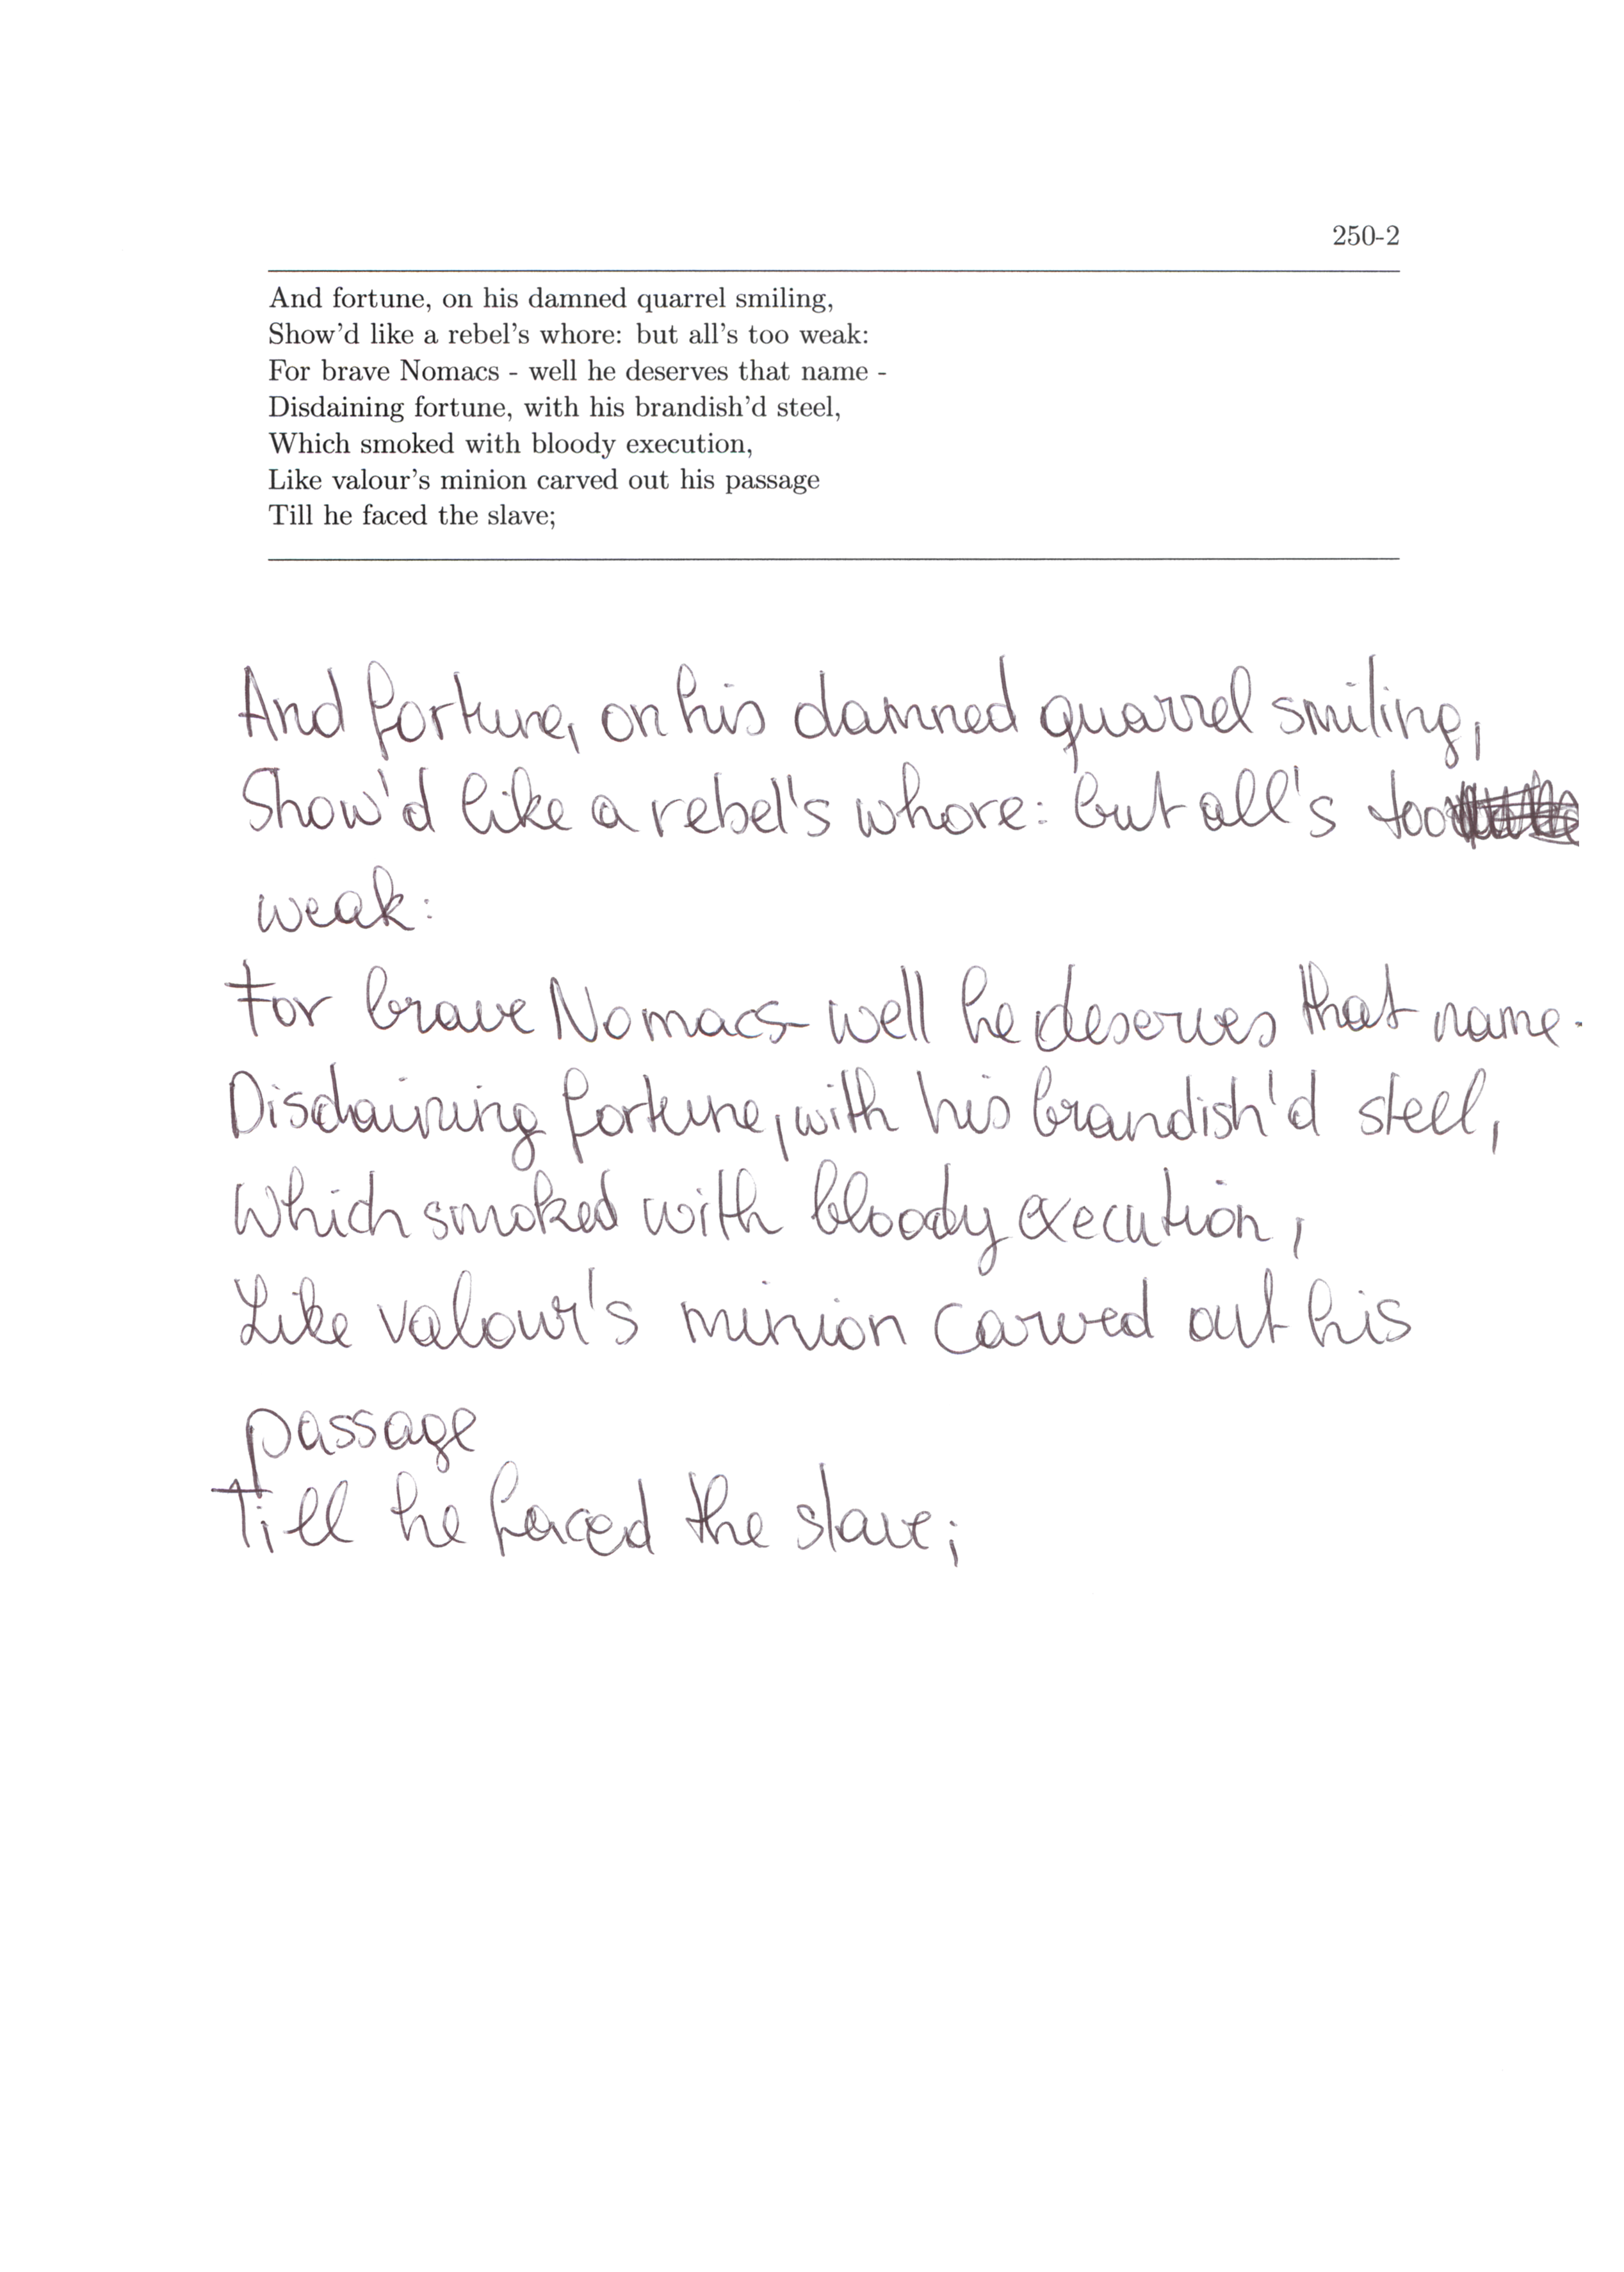 250-2
And fortune, on his damned quarrel smiling,
Show'd like a rebel's whore: but all's too weak:
For brave Nomacs - well he deserves that name -
Disdaining fortune, with his brandish'd steel,
Which smoked with bloody execution,
Like valour's minion carved out his passage
Till he faced the slave;
And fortune, on his damned quarrel smiling,
Show'd like a rebel's whore: but all's too
weak:
For brave Nomacs - well he deserves that name -
Disdaining fortune, with his brandish'd steel,
Which smoked with bloody execution,
Like valour's minion carved out his
passage
Till he faced the slave;